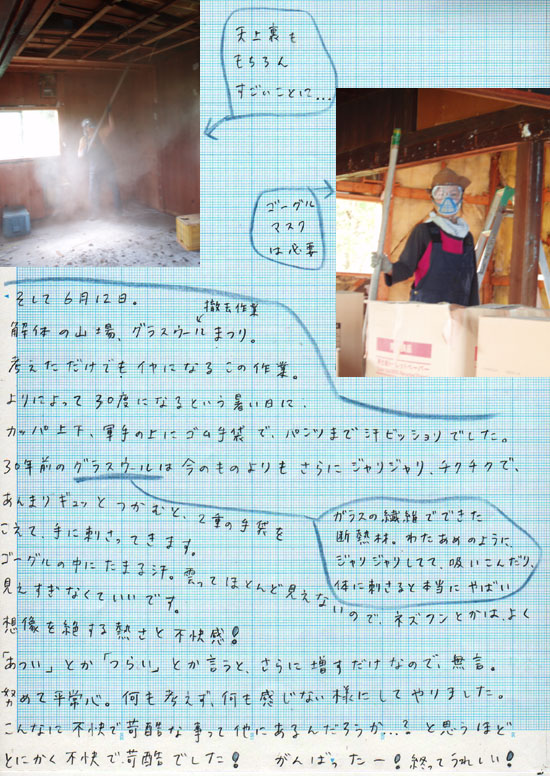 天上裏も
もちろん
すごいことに...
ゴーグル
マスク
は必要
そして6月12日。
撤去作業
解体の山場、グラスウールまつり。
考えただけでもイヤになるこの作業。
よりによって30度になるという暑い日に、
カッパ上下、軍手の上にゴム手袋で、パンツまで汗ビッショリでした。
30年前のグラスウールは今のものよりもさらにジャリジャリ、チクチクで、
あんまりギュッとつかむと、2重の手袋を
こえて、手に刺さってきます。
ゴーグルの中にたまる汗。曇ってほとんど見えない
ので、ネズフンとかは、よく
見えすぎなくていいです。
ガラスの繊維でできた
断熱材。わたあめのように、
ジャリジャリしてて、吸いこんだり、
体に刺さると本当にやばい
想像を絶する熱さと不快感!
「あつい」とか「つらい」とか言うと、さらに増すだけなので、無言。
努めて平常心。何も考えず、何も感じない様にしてやりました。
こんなに不快で苛酷な事って他にあるんだろうか...? と思うほど
とにかく不快で苛酷でした! がんばったー! 終ってうれしい!